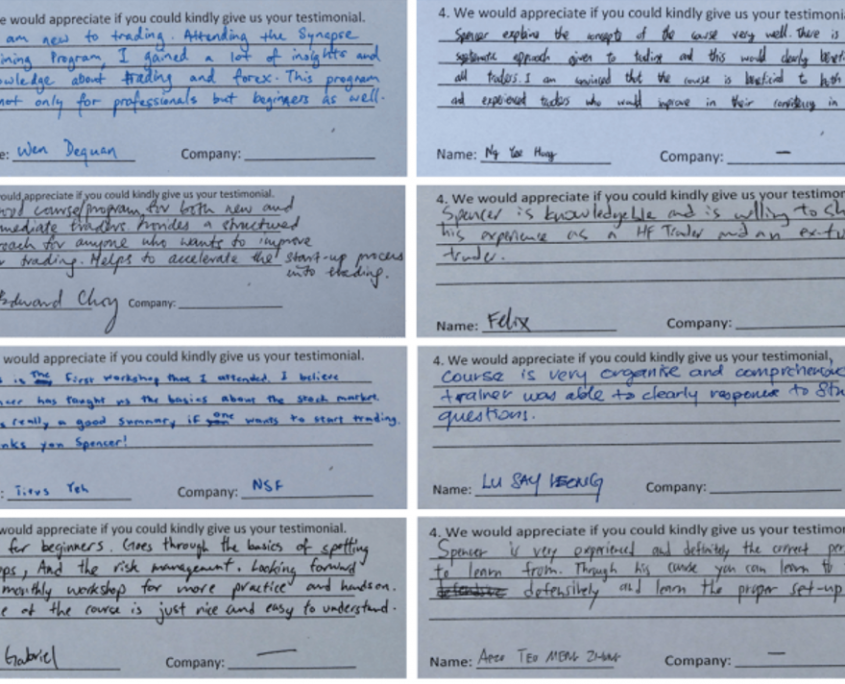 e would appreciate if you could kindly give us your testimonial.
am new to trading. Attending the Synapse
ining Program, I gained a lot of insights and
owledge about trading and forex. This program
not only for professionals but beginners as well.
e: Wen Dequan Company:
4. We would appreciate if you could kindly give us your testimonia
Spencer explains the concepts of the course very well. There is
systematic approach given to trading and this would clearly benefi
all traders. I am convinced that the course is beneficial to both
and experienced traders who would improve in their consistency in
Name: Ng Yee Hong Company: —
ould appreciate if you could kindly give us your testimonial.
ood course/program for both new and
mediate traders. Provides a structured
roach for anyone who wants to improve
r trading. Helps to accelerate the start-up process
into trading.
Edward Choy Company:
4. We would appreciate if you could kindly give us your testimor
Spencer is knowledgeable and is willing to sh
his experience as a HF Trader and an ex-fu
trader.
Name: Felix Company:
would appreciate if you could kindly give us your testimonial.
is the first workshop that I attended. I believe
ncer has taught us the basics about the stock market.
s really a good summary if one wants to start trading.
nks you Spencer!
: Titus Yeh Company: NSF
4. We would appreciate if you could kindly give us your testimonial,
Course is very organise and comprehensive
trainer was able to clearly response to Stu
questions.
Name: LU SAY LEONG Company:
would appreciate if you could kindly give us your testimonial.
for beginners. Goes through the basics of spotting
ops, And the risk management. Looking forward
monthly workshop for more practice and handson.
e of the course is just nice and easy to understand.
Gabriel Company: —
4. We would appreciate if you could kindly give us your testimor
Spencer is very experienced and definitely the correct per
to learn from. Through his course you can learn to
defensively and learn the proper set-up
Name: TEO MENG Company: —